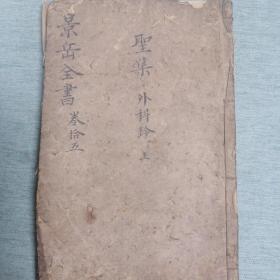 景岳全書 卷拾五
聖集 外科鈐 上